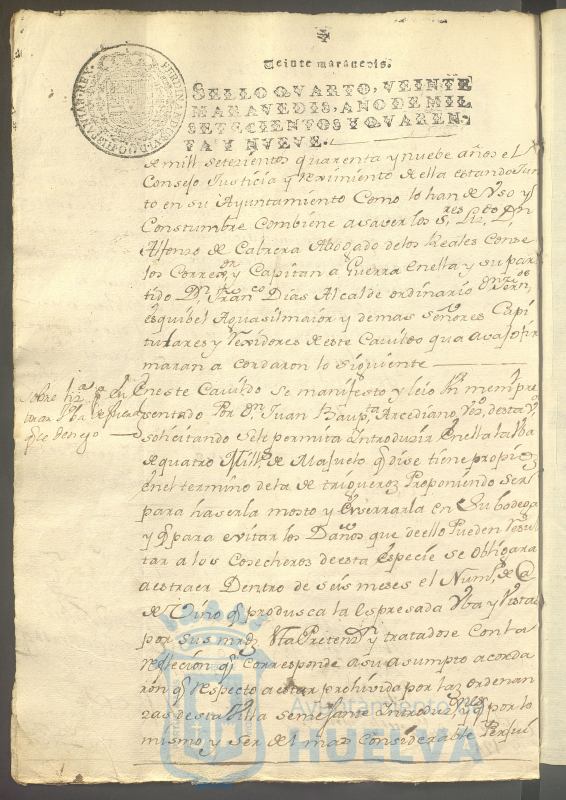 Veinte maravedis.
SELLO QVARTO, VEINTE
MARAVEDIS, AÑO DE MIL
SETECIENTOS Y QVAREN-
TA Y NVEVE.
de mill setezientos quarenta y nuebe años el
Consejo Justicia y reximiento de ella estando Jun
to en su Ayuntamiento Como lo han de Vso y
Constumbre Combiene a saver los Sres Lizdo Dn
Alfonso de Cabrera Abogado delos Reales Conse
los Corregor y Capitan a Guerra Enella y su par
tido Dn Franco Dias Alcalde ordinario
esquibel Aguasil maior y demas señores Capi
tulares y Rexidores de este Cavildo que avajo fir
maran acordaron lo siguiente
Eneste Cavildo se manifesto y leio Un mem pre
sentado Por Dn Juan Baupta Arcediano Vzo desta Va
solicitando sele permita Introduzir Enella la Vba
de quatro Mills de Majuelo q dise tiene propios
en el termino dela de trigueros Proponiendo ser
para haserla mosto y Enserrarla en Su bodega
y q para evitar los Daños que deello Pueden Resul
tar a los Cosecheros deesta Especie se obligara
a estraer Dentro de seis meses el Numo de @
de Vino q produsca la Espresada Vba y Vista
por sus mrdz Vta Pretenn y tratadose Con la
reflecion q Corresponde a su asumpto acorda
ron q respecto a estar prohivida por las ordenan
zas desta Villa semejante Introduzn y por lo
mismo y Ser del mas Considerable Perjui
Ayuntamiento de
HUELVA